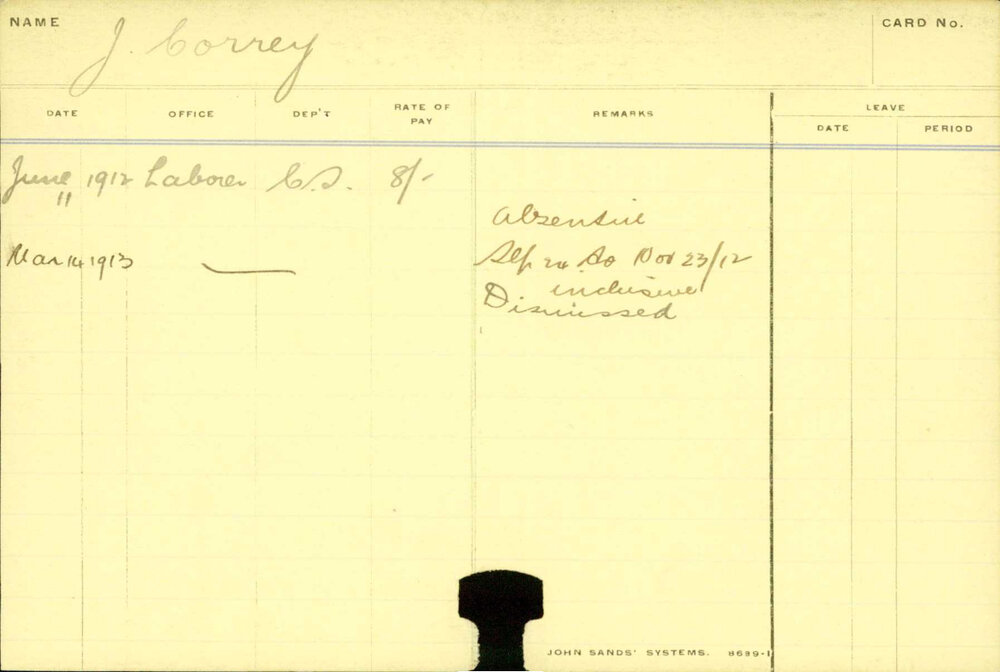 NAME J. Correy CARD No.
DATE OFFICE DEP'T RATE OF PAY REMARKS LEAVE
DATE PERIOD
June 1912 Laborer C.S. 8/-
"
Absentive
Mar 14 1913 Sep to Nov 23/12
inclusive
Dismissed
JOHN SANDS' SYSTEMS. 8699-1